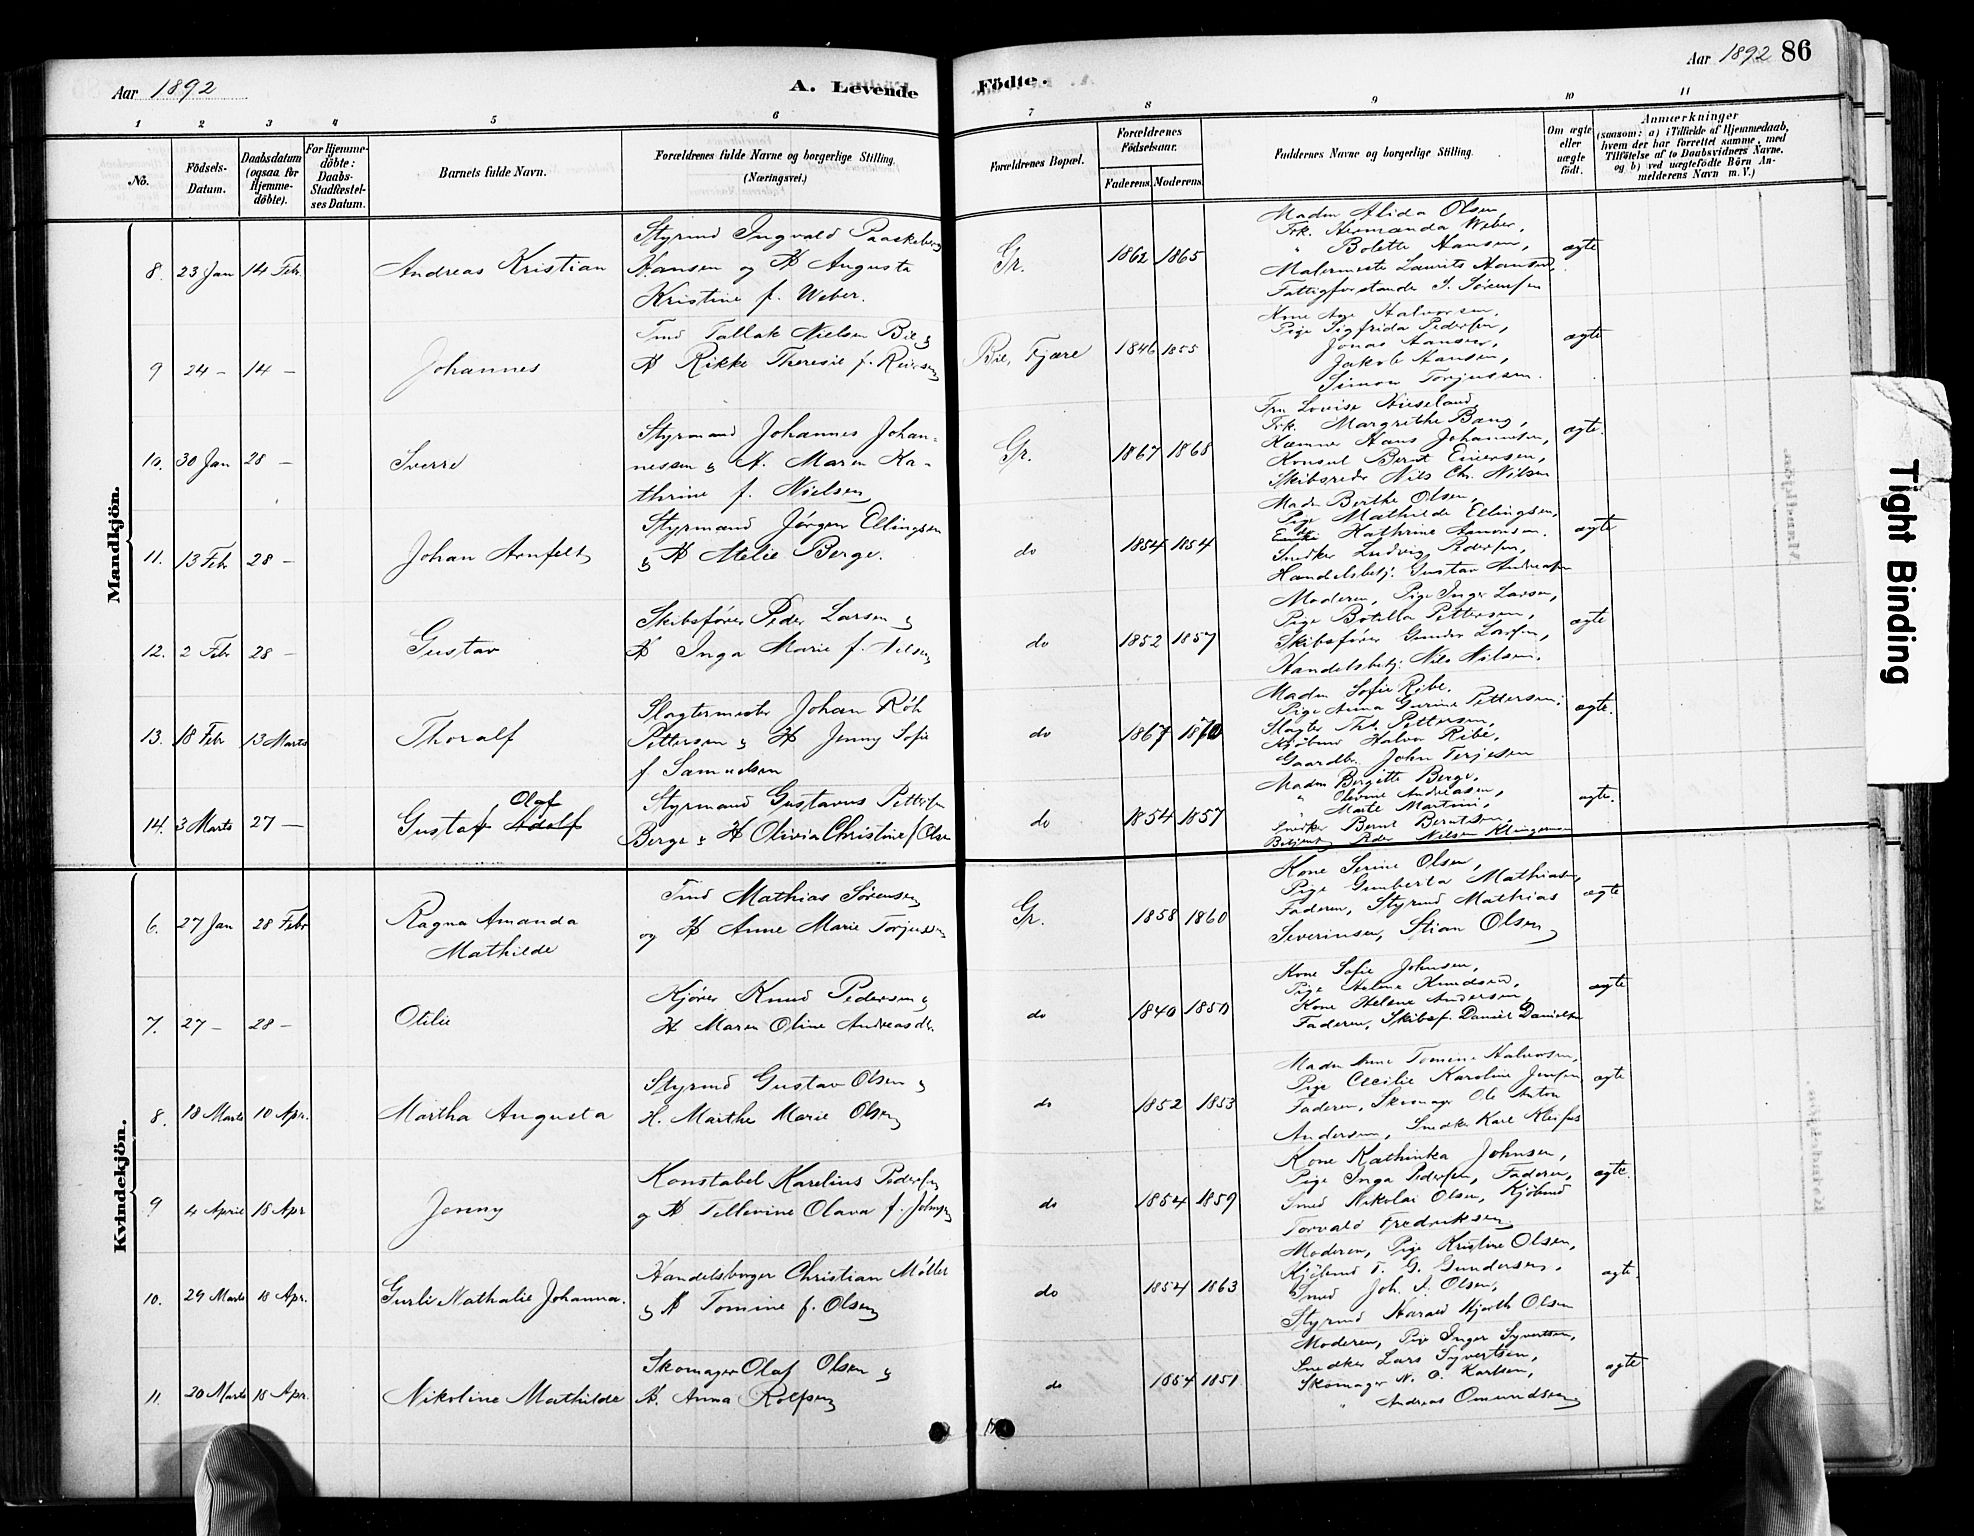 Aar 1892
A. Levende Födte.
Aar 1892 86
1 2 3 4 5 6 7 8 9 10 11
No.
Födsels-Datum.
Daabsdatum (ogsaa for Hjemmedöbte).
For Hjemmedöbte: Daabs-Stadfæstelses Datum.
Barnets fulde Navn.
Forældrenes fulde Navne og borgerlige Stilling. (Næringsvei.)
Forældrenes Bopæl.
Forældrenes Födselsaar.
Faderens. Moderens.
Faddernes Navne og borgerlige Stilling.
Om ægte eller uægte födt.
Anmærkninger
(saasom: a) i Tilfælde af Hjemmedaab, hvem der har forrettet samme, med Tilföielse af to Daabsvidners Navne. og b) ved uægtefödte Börn Anmelderens Navn m. V.)
Mandkjön.
8. 23 Jan 14 Febr. Andreas Kristian
Styrmd Ingvald Paaskeberg
Hansen og H Augusta
Kristine f. Weber.
Gr. 1862 1865
Madm Alida Olsen,
Frk. Hermanda Weber,
" Bolette Hansen,
Malermester Laurits Hansen,
Fattigforstander S. Sörensen
ægte
9 24 – 14 – Johannes
Tmd Tallak Nielsen Bie &
H Rikke Theresie f. Reiersen
Bie, Fjære 1846 1855
Kone Age Halvorsen,
Pige Sigfrida Pedersen,
Jonas Hansen,
Jakob Hansen,
Simon Torjussen.
ægte
10. 30 Jan 28 – Sverre
Styrmand Johannes Johan-
nessen & H. Maren Ka-
thrine f. Nielsen
Gr. 1867 1868
Fru Louise
Frk. Margrethe Bang,
Kæmner Hans Johannsen,
Konsul Bernt
Skibsreder Nils Chr. Nilsen
ægte.
11. 13 Febr 28 – Johan Arnfelt
Styrmand Jörgen Ellingsen
& H Atelie Berge.
do 1854 1854
Madm Berthe Olsen,
Pige Mathilde Ellingsen,
Kathrine
Snedker Ludvig Pedersen,
Handelsbetj. Gustav Andreasen
ægte
12. 2 Febr 28 – Gustav
Skibsförer Peder Larsen &
H Inga Marie f. Nilsen
do 1852 1857
Moderen, Pige Inger Larsen,
Pige Botilla Pettersen,
Skibsförer Gunder Larsen,
Handelsbetj. Nils Nilsen.
ægte
13. 18 Febr 13 Marts Thoralf
Slagtermester Johan Röh
Pettersen & H Jenny Sofie
f Samuelsen
do 1867 1870
Madm Sofie Ribe.
Pige Anna Gurine Pettersen,
Slagter Ths. Pettersen,
Kjöbmd Halvor Ribe,
Gaardbr. John Terjesen
ægte.
Olaf
14. 3 Marts 27 – Gustaf Adolf
Styrmand Gustavus Pettersen
Berge & H Olivia Christine f Olsen
do 1854 1857
Madm Bergitte Berge,
" Olevine Andreasen,
Marte Martini,
Snedker Bernt Berntsen,
Betjent Peder Nilsen
ægte.
Kvindekjön.
6. 27 Jan 28 Febr Ragna Amanda
Mathilde
Tmd Mathias Sörensen
og H Anne Marie Torjussen
Gr. 1858 1860
Kone Serine Olsen,
Pige Gunberta Mathiasen,
Faderen, Styrmd Mathias
Severinsen, Stian Olsen
ægte
7. 27 – 28 – Otilie
Kjörer Knud Pedersen &
H Maren Oline Andreasdr.
do 1840 1850
Kone Sofie Johnsen,
Pige Helene Knudsen,
Kone Helene Andersen
Faderen, Skibsf. Daniel Danielsen
ægte
8. 18 Marts 10 Apr. Martha Augusta
Styrmd Gustav Olsen &
H. Marthe Marie Olsen
do 1852 1853
Madm Anne Tomine Halvorsen,
Pige Cecilie Karoline Jensen
Faderen, Skomager Ole Anton
Andersen, Snedker Karl
ægte
9 4 April 18 Apr Jenny
Konstabel Karelius Pedersen
og H Tellevine Olava f. Johnsen
do 1854 1859
Kone Kathinka Johnsen,
Pige Inga Pedersen, Faderen,
Smed Nikolai Olsen, Kjöbmd
Torvald Fredriksen
ægte.
10. 29 Marts 18 Apr. Gurli Nathalie Johanna.
Handelsborger Christian Möller
& H Tomine f. Olsen
do 1854 1863
Moderen, Pige Kristine Olsen,
Kjöbmd T. G. Gundersen,
Smed Joh. S. Olsen,
Styrmd Harald Hjorth Olsen
ægte.
11. 20 Marts 18 Apr. Nikoline Mathilde
Skomager Olaf Olsen &
H. Anna Rolfsen
do 1854 1851
Moderen, Pige Inger Syvertsen,
Snedker Lars Syvertsen,
Skomager N. O. Karlsen,
" Andreas Omundsen
ægte
Tight Binding